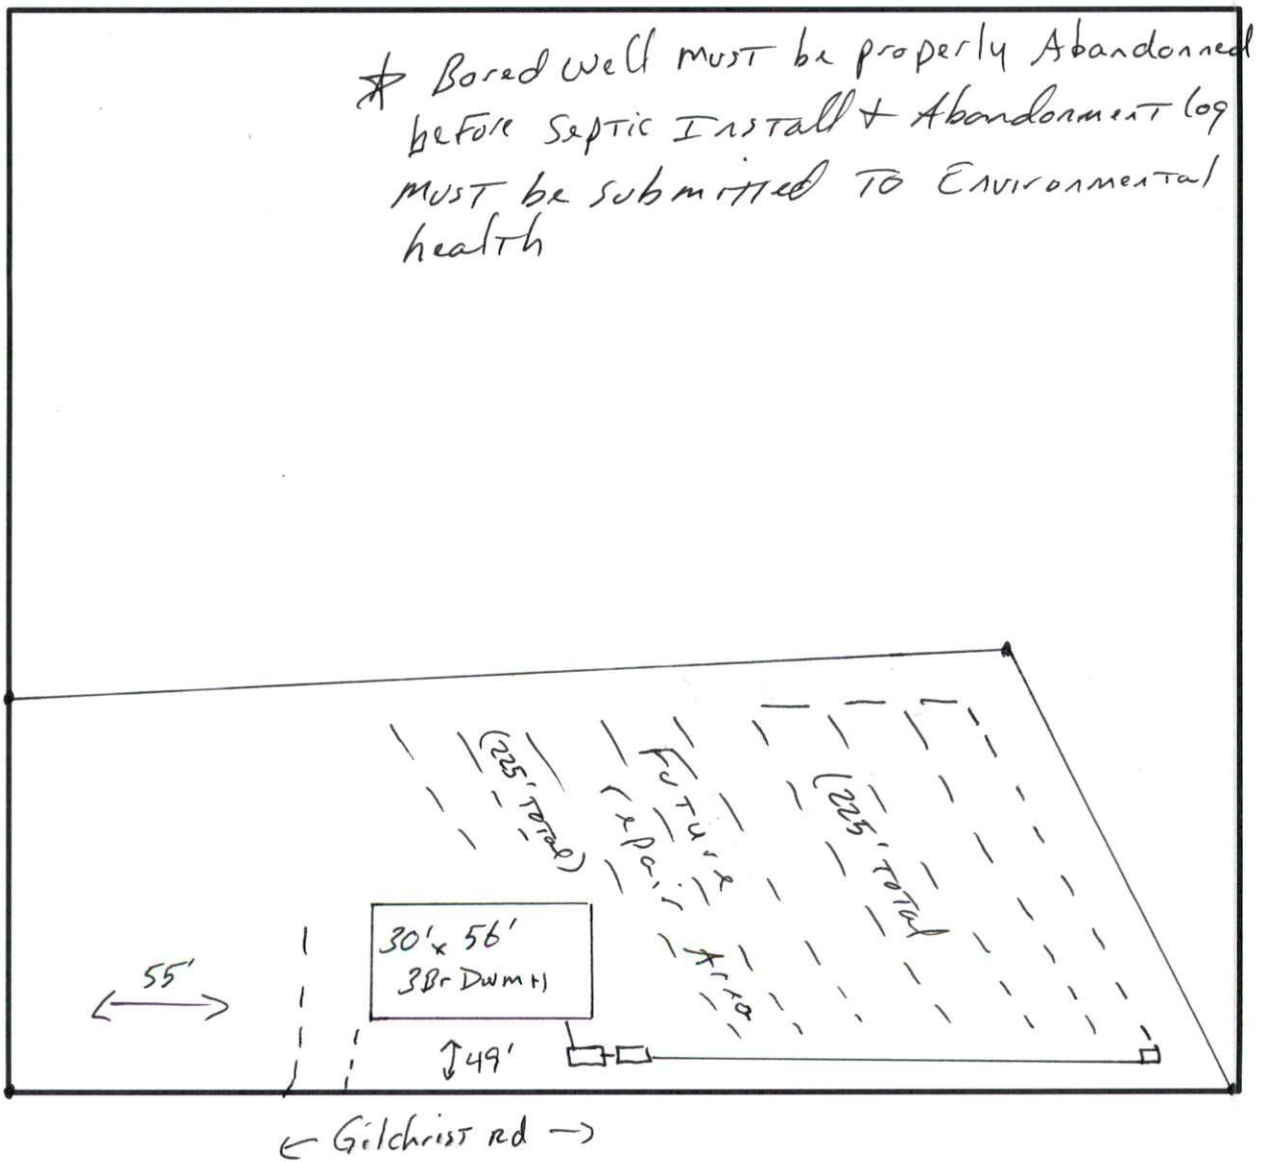 * Bored well must be properly Abandonned
before Septic Install + Abandonment log
must be submitted To Environmental
health
(225' Total)
Future
repair Area
(225' Total
30' x 56'
3Br Dwmh
55'
49'
← Gilchrist rd →